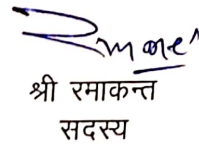 श्री रमाकन्त
सदस्य